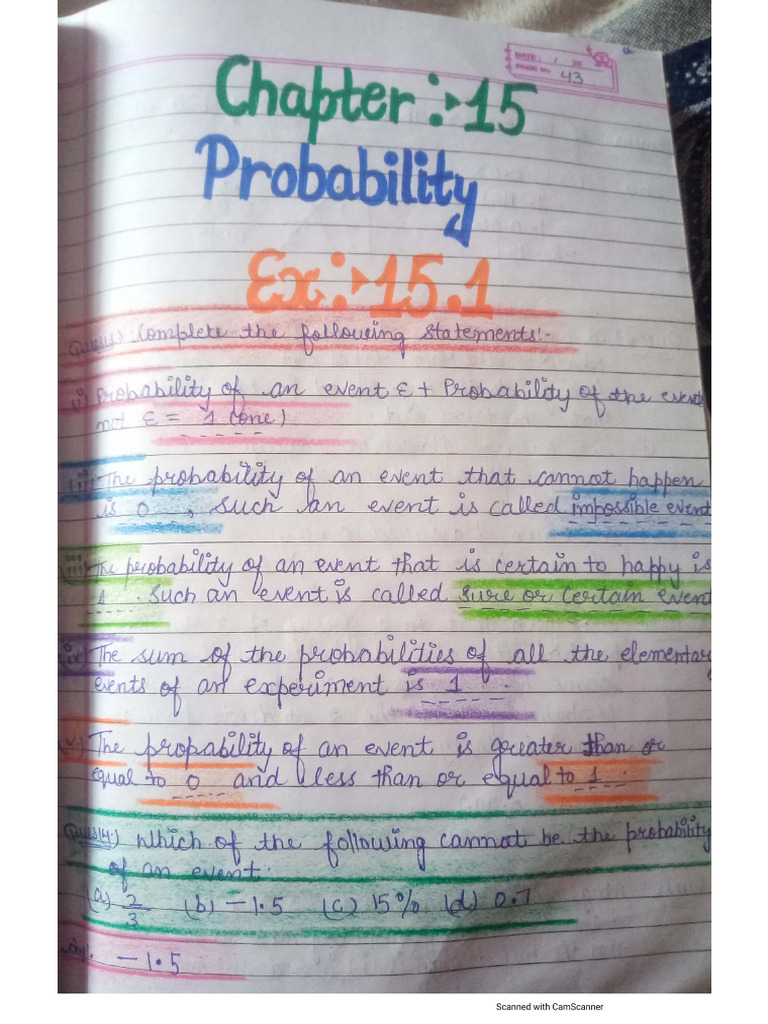 DATE: / 20
PAGE No. 43
Chapter :- 15
Probability
Ex :- 15.1
Ques1) Complete the following statements:-
(i) Probability of an event E + Probability of the event
not E = 1 (one)
(ii) The probability of an event that cannot happen
is 0 , such an event is called impossible event
(iii) The probability of an event that is certain to happy is
1 . Such an event is called sure or certain event
(iv) The sum of the probabilities of all the elementary
events of an experiment is 1 .
(v.) The propability of an event is greater than or
equal to 0 and less than or equal to 1 .
Ques14:) Which of the following cannot be the probability
of an event.
(a) 2/3 (b) -1.5 (c) 15% (d) 0.7
-1.5
Scanned with CamScanner